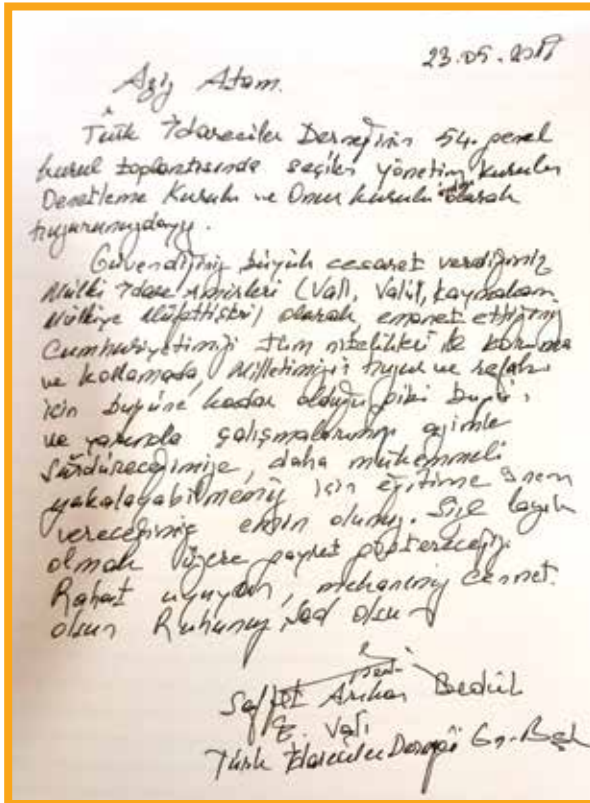 23.05.2018
Aziz Atam.
Türk İdareciler Derneğinin 54. genel
kurul toplantısında seçilen yönetim kurulu
Denetleme Kurulu ve Onur kurulu olarak
huzurunuzdayız.
Güvendiğiniz, büyük cesaret verdiğiniz
Mülki İdare Amirleri (Vali, Vali, Kaymakam
Mülkiye Müfettişleri) olarak emanet ettiğiniz
Cumhuriyetimizi tüm nitelikleri ile koruma
ve kollamada, Milletimizi huzur ve refahı
için bugüne kadar olduğu gibi bugün
ve yarında çalışmalarımızı azimle
Sürdüreceğimize, daha mükemmeli
yakalayabilmemiz için eğitime önem
vereceğimize emin olunuz. Size layık
olmak üzere gayret göstereceğiz.
Rahat uyuyun, mekanınız cennet
olsun Ruhunuz Şad olsun
Saffet Arıkan Bedük
E. Vali
Türk İdareciler Derneği Gn. Bşk